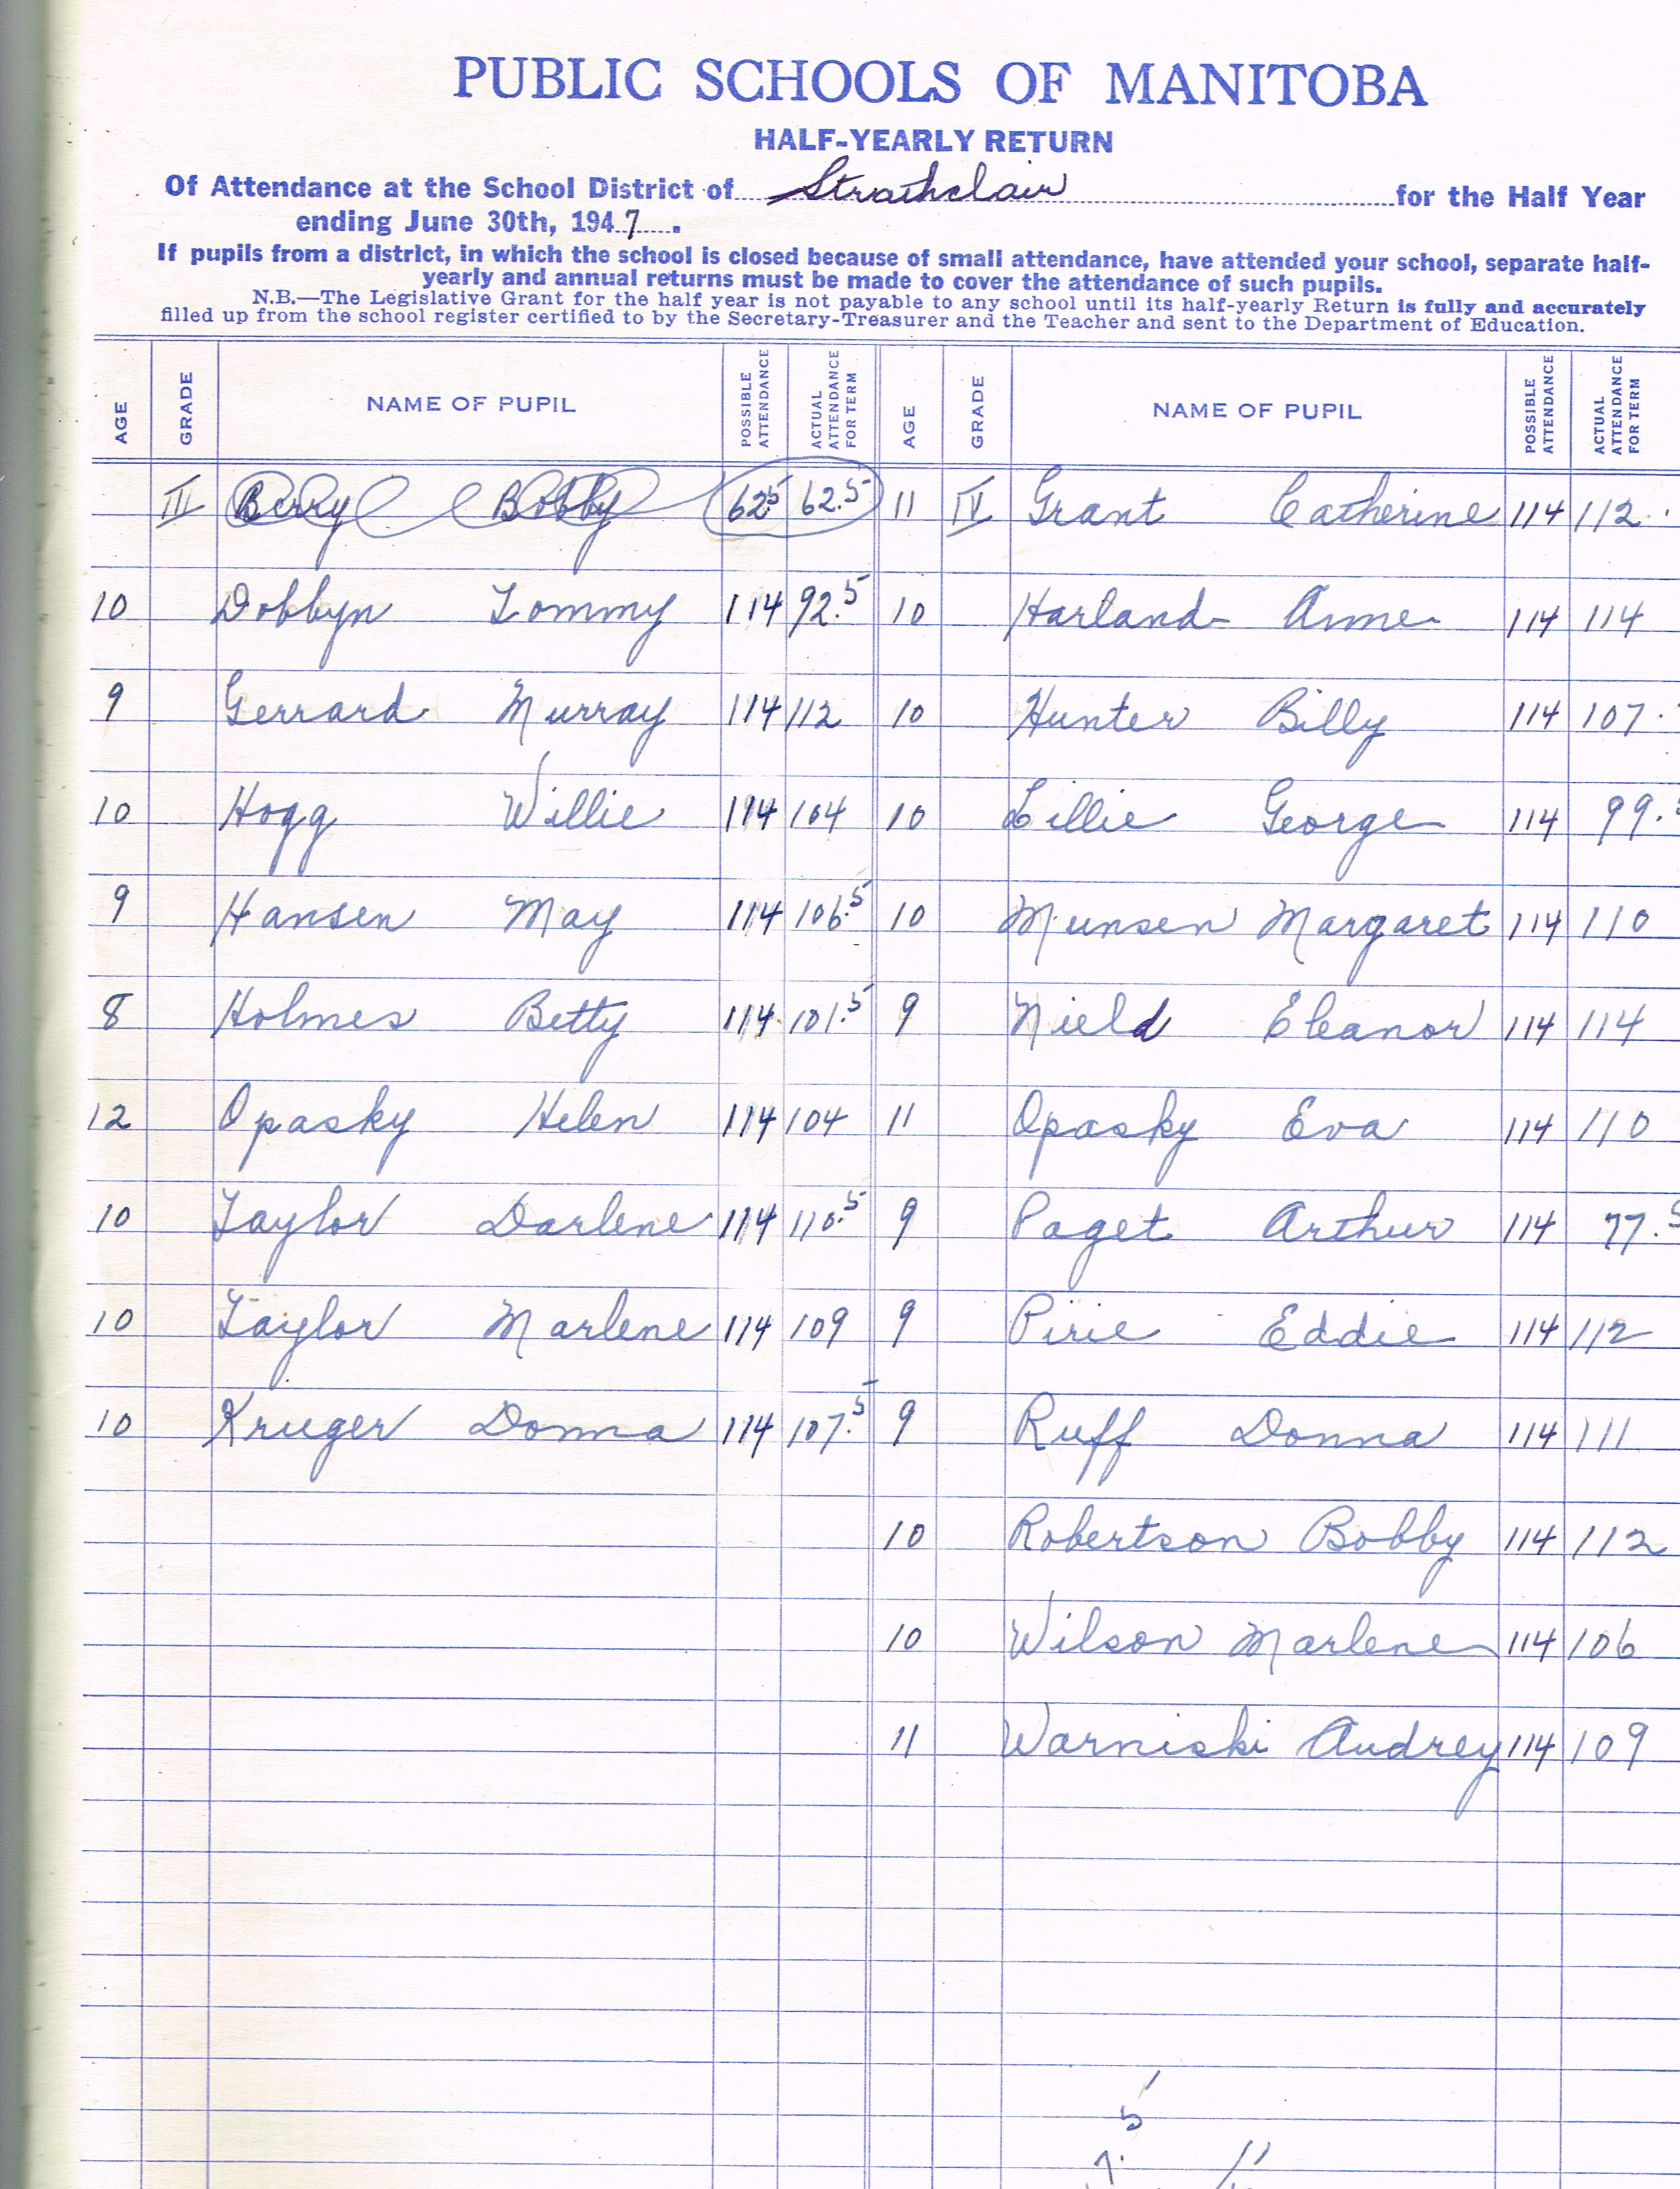 PUBLIC SCHOOLS OF MANITOBA
HALF-YEARLY RETURN
Of Attendance at the School District of Strathclair for the Half Year
ending June 30th, 1947.
If pupils from a district, in which the school is closed because of small attendance, have attended your school, separate half-
yearly and annual returns must be made to cover the attendance of such pupils.
N.B.—The Legislative Grant for the half year is not payable to any school until its half-yearly Return is fully and accurately
filled up from the school register certified to by the Secretary-Treasurer and the Teacher and sent to the Department of Education.
AGE GRADE NAME OF PUPIL POSSIBLE ATTENDANCE ACTUAL ATTENDANCE FOR TERM AGE GRADE NAME OF PUPIL POSSIBLE ATTENDANCE ACTUAL ATTENDANCE FOR TERM
III Berry Bobby 62.5 62.5 11 IV Grant Catherine 114 112
10 Dobbyn Tommy 114 92.5 10 Harland Anne 114 114
9 Gerrard Murray 114 112 10 Hunter Billy 114 107.
10 Hogg Willie 114 104 10 Lillie George 114 99.5
9 Hansen May 114 106.5 10 Munsen Margaret 114 110
8 Holmes Betty 114 101.5 9 Nield Eleanor 114 114
12 Opasky Helen 114 104 11 Opasky Eva 114 110
10 Taylor Darlene 114 110.5 9 Paget Arthur 114 77.5
10 Taylor Marlene 114 109 9 Pirie Eddie 114 112
10 Kruger Donna 114 107.5 9 Ruff Donna 114 111
10 Robertson Bobby 114 112
10 Wilson Marlene 114 106
11 Warniski Audrey 114 109